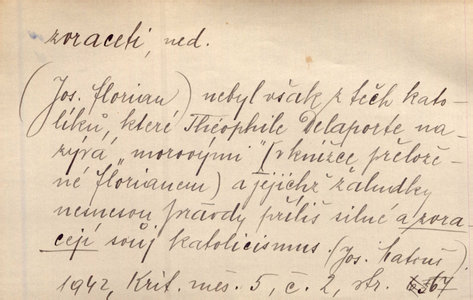 zoraceti, ned.
(Jos. Florian) nebyl však z těch kato-
líků, které Théophile Delaporte na-
zývá „morovými" (v knížce přelože-
né Florianem) a jejichž žaludky
nesnesou pravdy příliš silné a zora-
cejí svůj katolicismus. (Jos.
1942, Krit. měs. 5, č. 2, str. 67